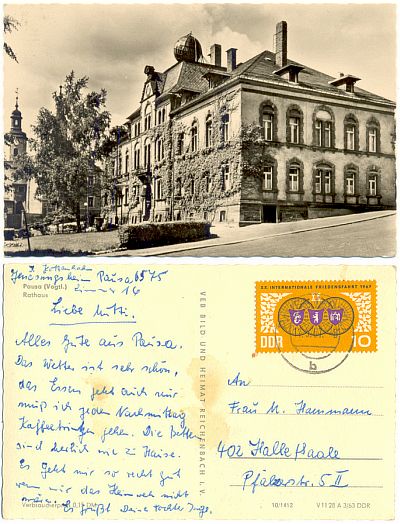 Pausa (Vogtl.)
Rathaus
Genesungsheim Pausa 6575
Zimmer 16
Liebe Mutti.
Alles Gute aus Pausa.
Das Wetter ist sehr schön,
das Essen geht auch nur
muß ich jeden Nachmittag
Kaffeetrinken gehen. Die Betten
sind herrlich wie zu Hause.
Es geht mir so recht gut
wenn nur das Heimweh nicht
wäre. Es grüßt Deine Tochter Inge.
VEB BILD UND HEIMAT REICHENBACH i. V.
XX. INTERNATIONALE FRIEDENSFAHRT 1967
DDR 10
b
An
Frau M. Hammann
402 Halle/Saale
Pfälzerstr. 5 II
10/1412
V 11 28 A 3/63 DDR